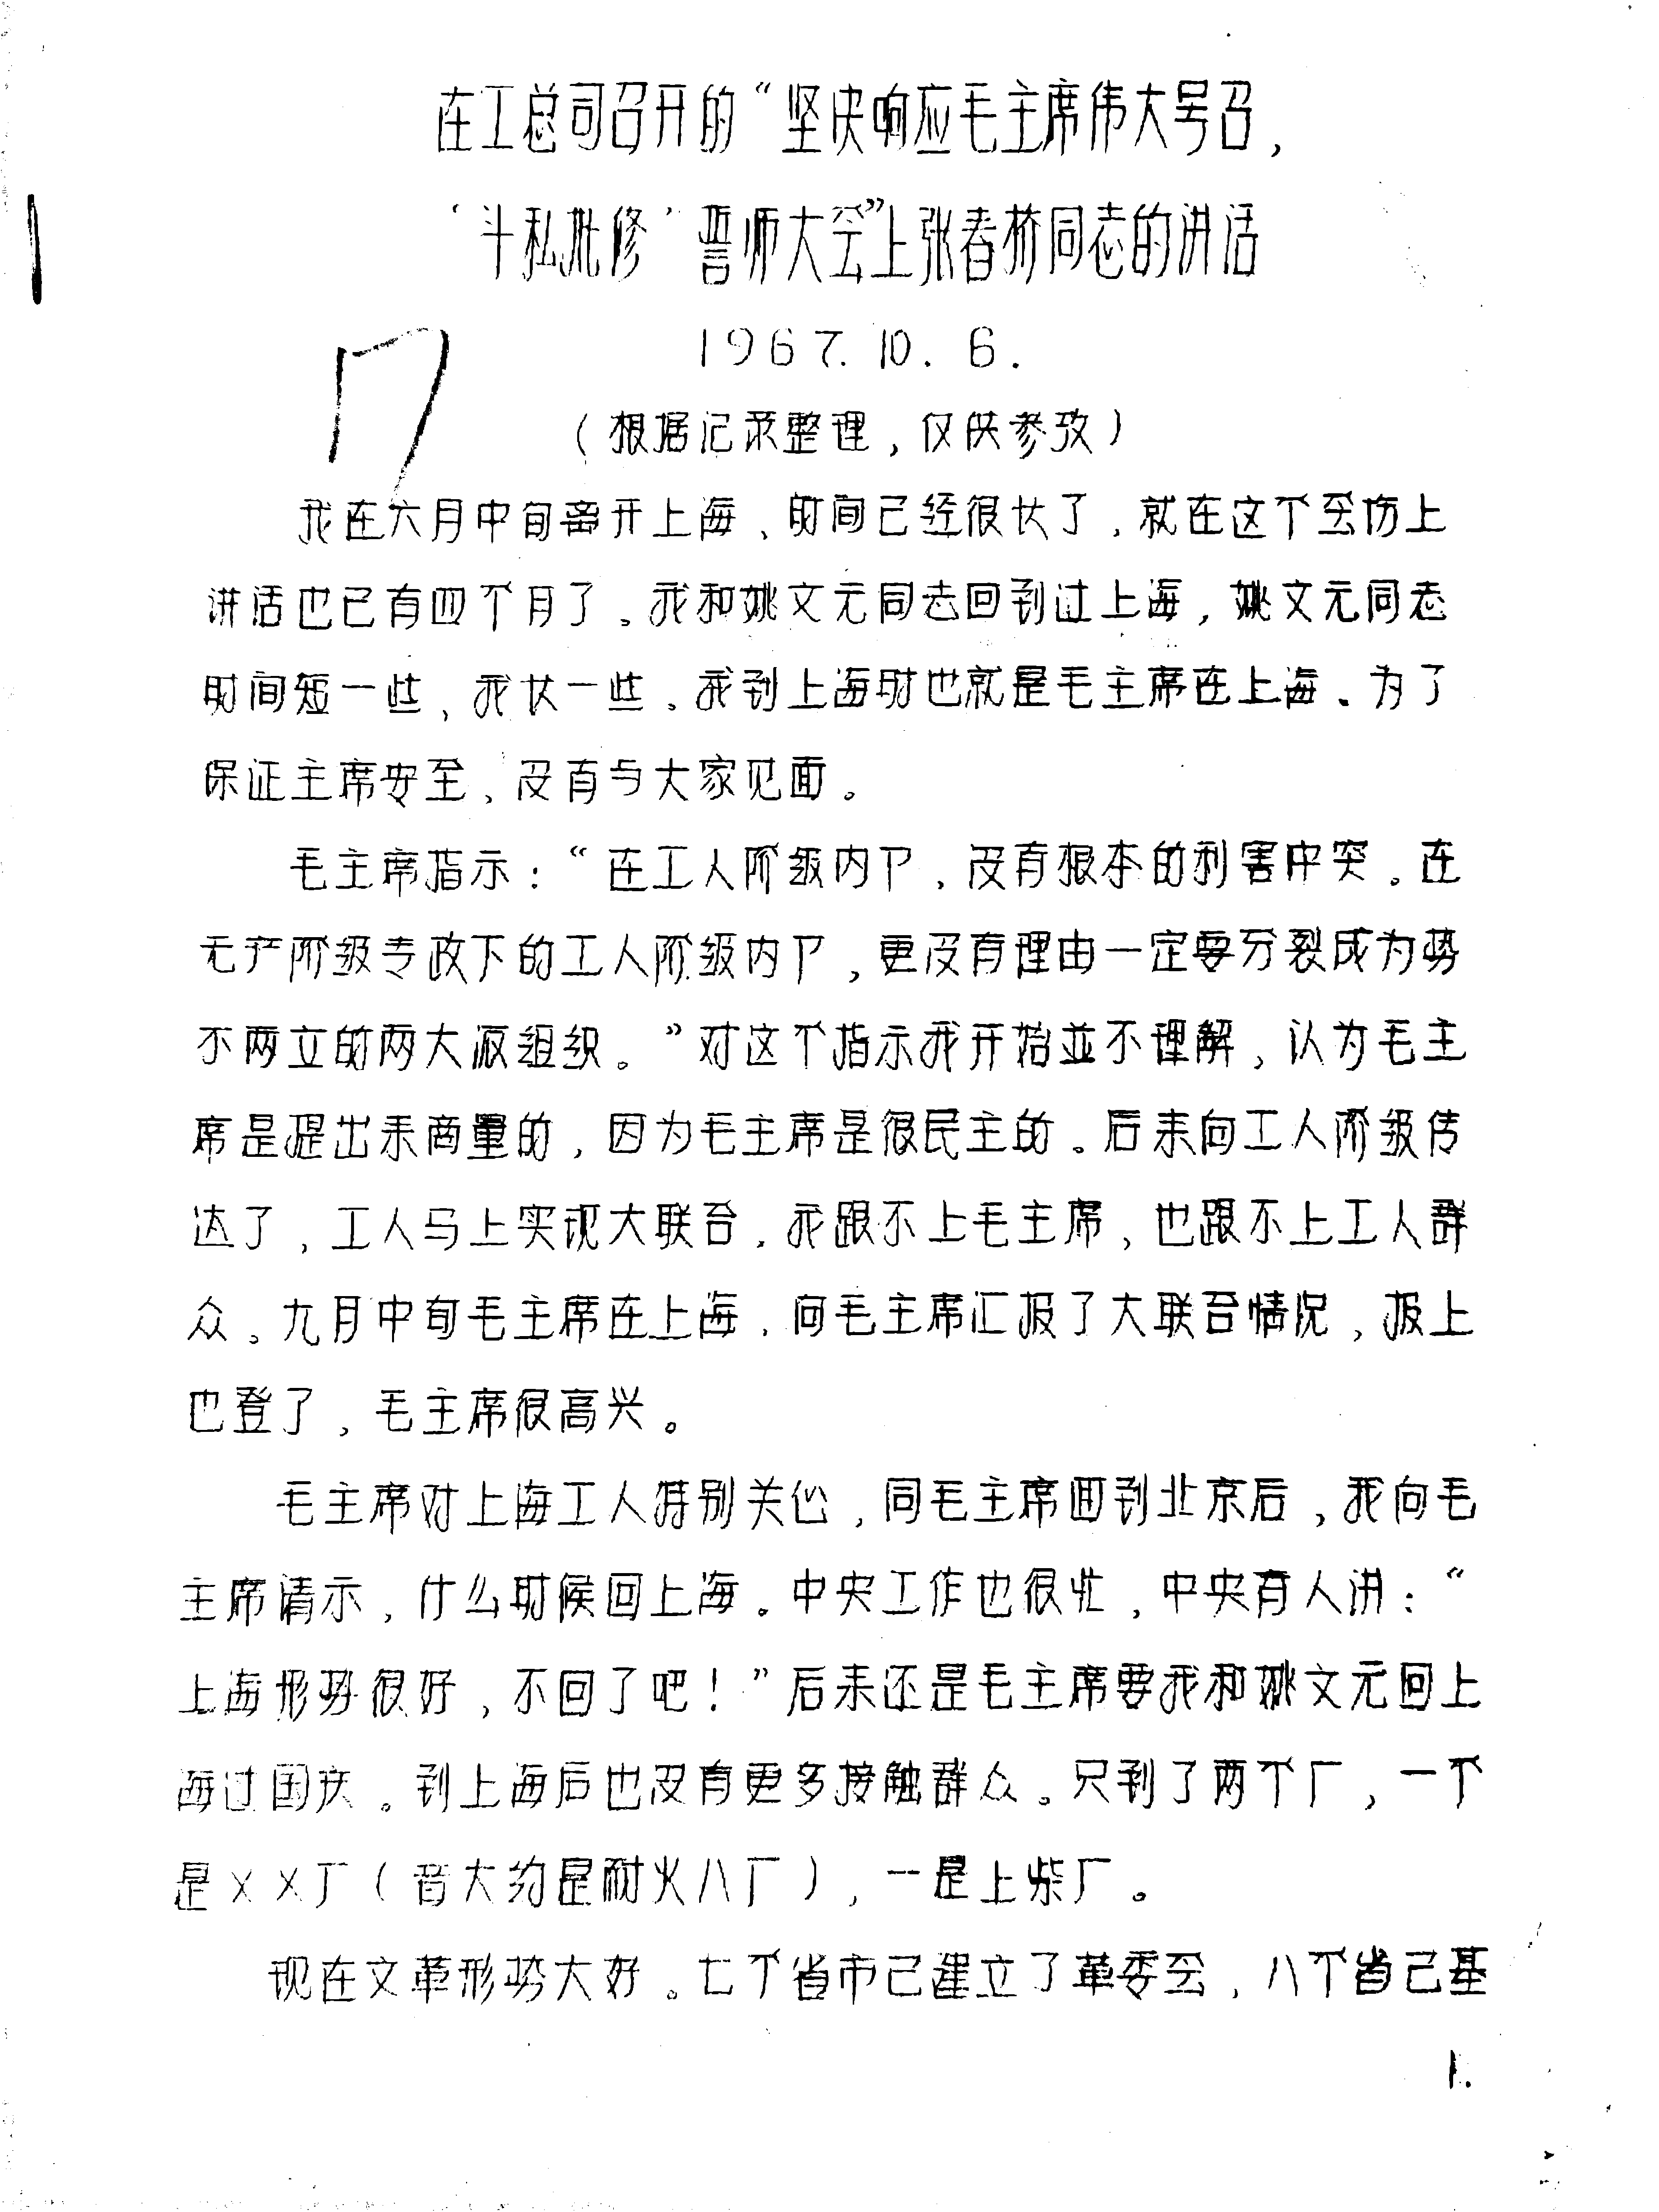 在工总司召开的“坚决响应毛主席伟大号召，
‘斗私批修’誓师大会”上张春桥同志的讲话
1967.10.6.
（根据记录整理，仅供参考）
我在六月中旬离开上海、时间已经很长了，就在这个会场上
讲话也已有四个月了。我和姚文元同志回到过上海，姚文元同志
时间短一些、我长一些。我到上海时也就是毛主席在上海、为了
保证主席安全、没有与大家见面。
毛主席指示：“在工人阶级内卩、没有根本的利害冲突。在
无产阶级专政下的工人阶级内卩，更没有理由一定要分裂成为势
不两立的两大派组织。”对这个指示我开始並不理解，认为毛主
席是提出来商量的，因为毛主席是很民主的。后来向工人阶级传
达了，工人马上实现大联合，我跟不上毛主席，也跟不上工人群
众。九月中旬毛主席在上海，向毛主席汇报了大联合情况，报上
也登了，毛主席很高兴。
毛主席对上海工人特别关心，同毛主席回到北京后，我向毛
主席请示，什么时候回上海。中央工作也很忙，中央有人讲：“
上海形势很好，不回了吧！”后来还是毛主席要我和姚文元回上
海过国庆。到上海后也没有更多接触群众。只到了两个厂，一个
是××厂（音大约是耐火八厂），一是上柴厂。
现在文革形势大好。七个省市已建立了革委会，八个省已基
1.